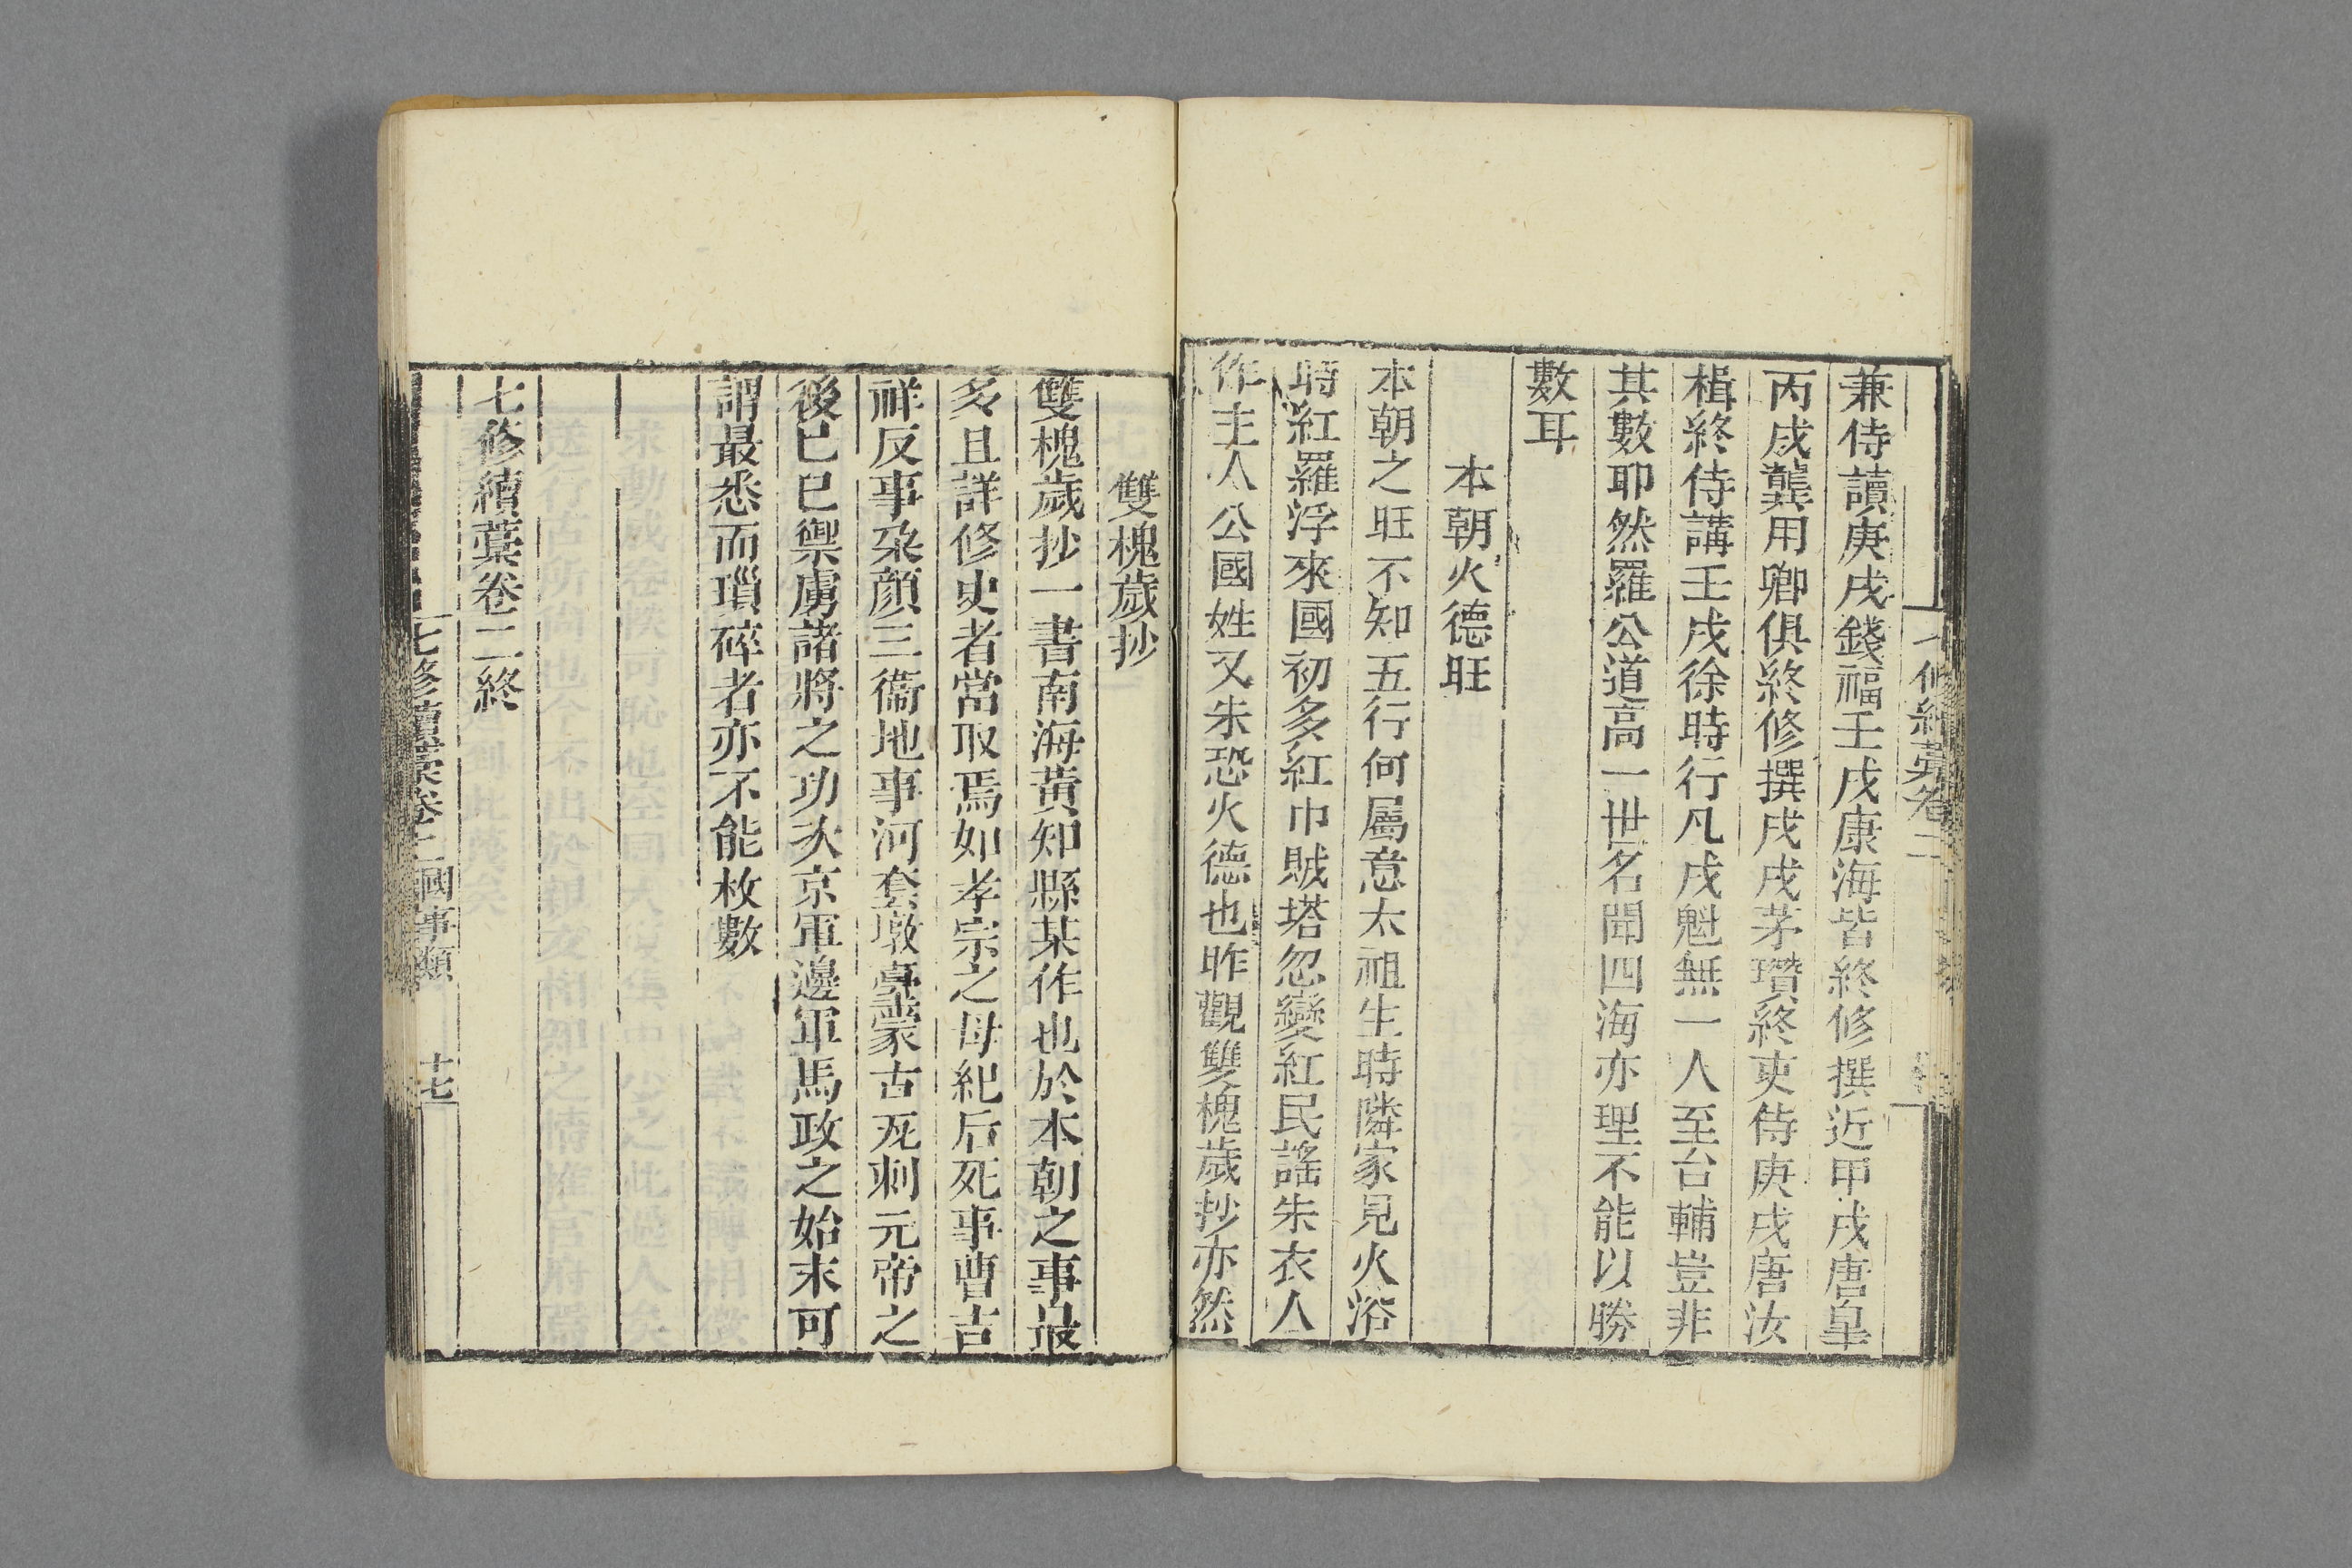 兼侍讀庚戌錢福壬戌康海皆終修撰近甲戌唐皐
丙戌龔用卿俱終修撰戌戌茅瓚終吏侍庚戌唐汝
楫終侍講壬戌徐時行凡戌魁無一人至台輔豈非
其數耶然羅公道高一世名聞四海亦理不能以勝
數耳
本朝火德旺
本朝之旺不知五行何屬意太祖生時隣家見火浴
時紅羅浮來國初多紅巾賊塔忽變紅民謠朱衣人
作主人公國姓又朱恐火德也昨觀雙槐歲抄亦然
雙槐歲抄
雙槐歲抄一書南海黃知縣某作也於本朝之事最
多且詳修史者當取焉如孝宗之母紀后死事曹吉
祥反事朶顏三衞地事河套墩臺蒙古死刺元帝之
後已巳禦虜諸將之功次京軍邊軍馬政之始末可
謂最悉而瑣碎者亦不能枚數
七修續藁卷二終
七修續藁卷二 國事類 十七